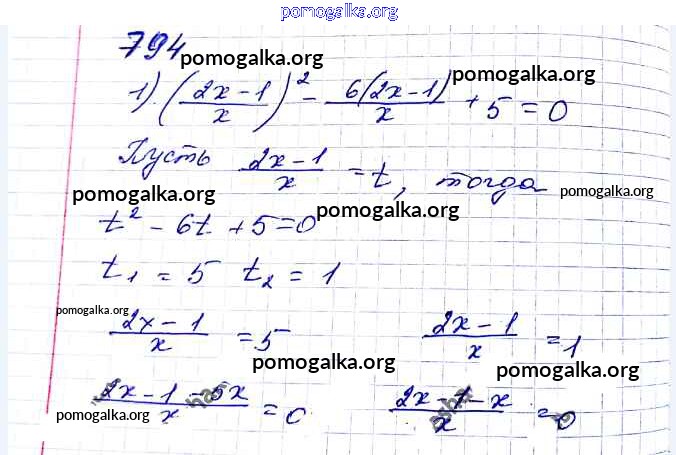 pomogalka.org
794
pomogalka.org
pomogalka.org
1) ((2x-1)/x)² - 6(2x-1)/x + 5 = 0
Пусть (2x-1)/x = t, тогда
pomogalka.org
pomogalka.org
pomogalka.org
t² - 6t + 5 = 0
t₁ = 5 t₂ = 1
pomogalka.org
(2x-1)/x = 5 (2x-1)/x = 1
pomogalka.org
pomogalka.org
(2x-1-5x)/x = 0 (2x-1-x)/x = 0
pomogalka.org